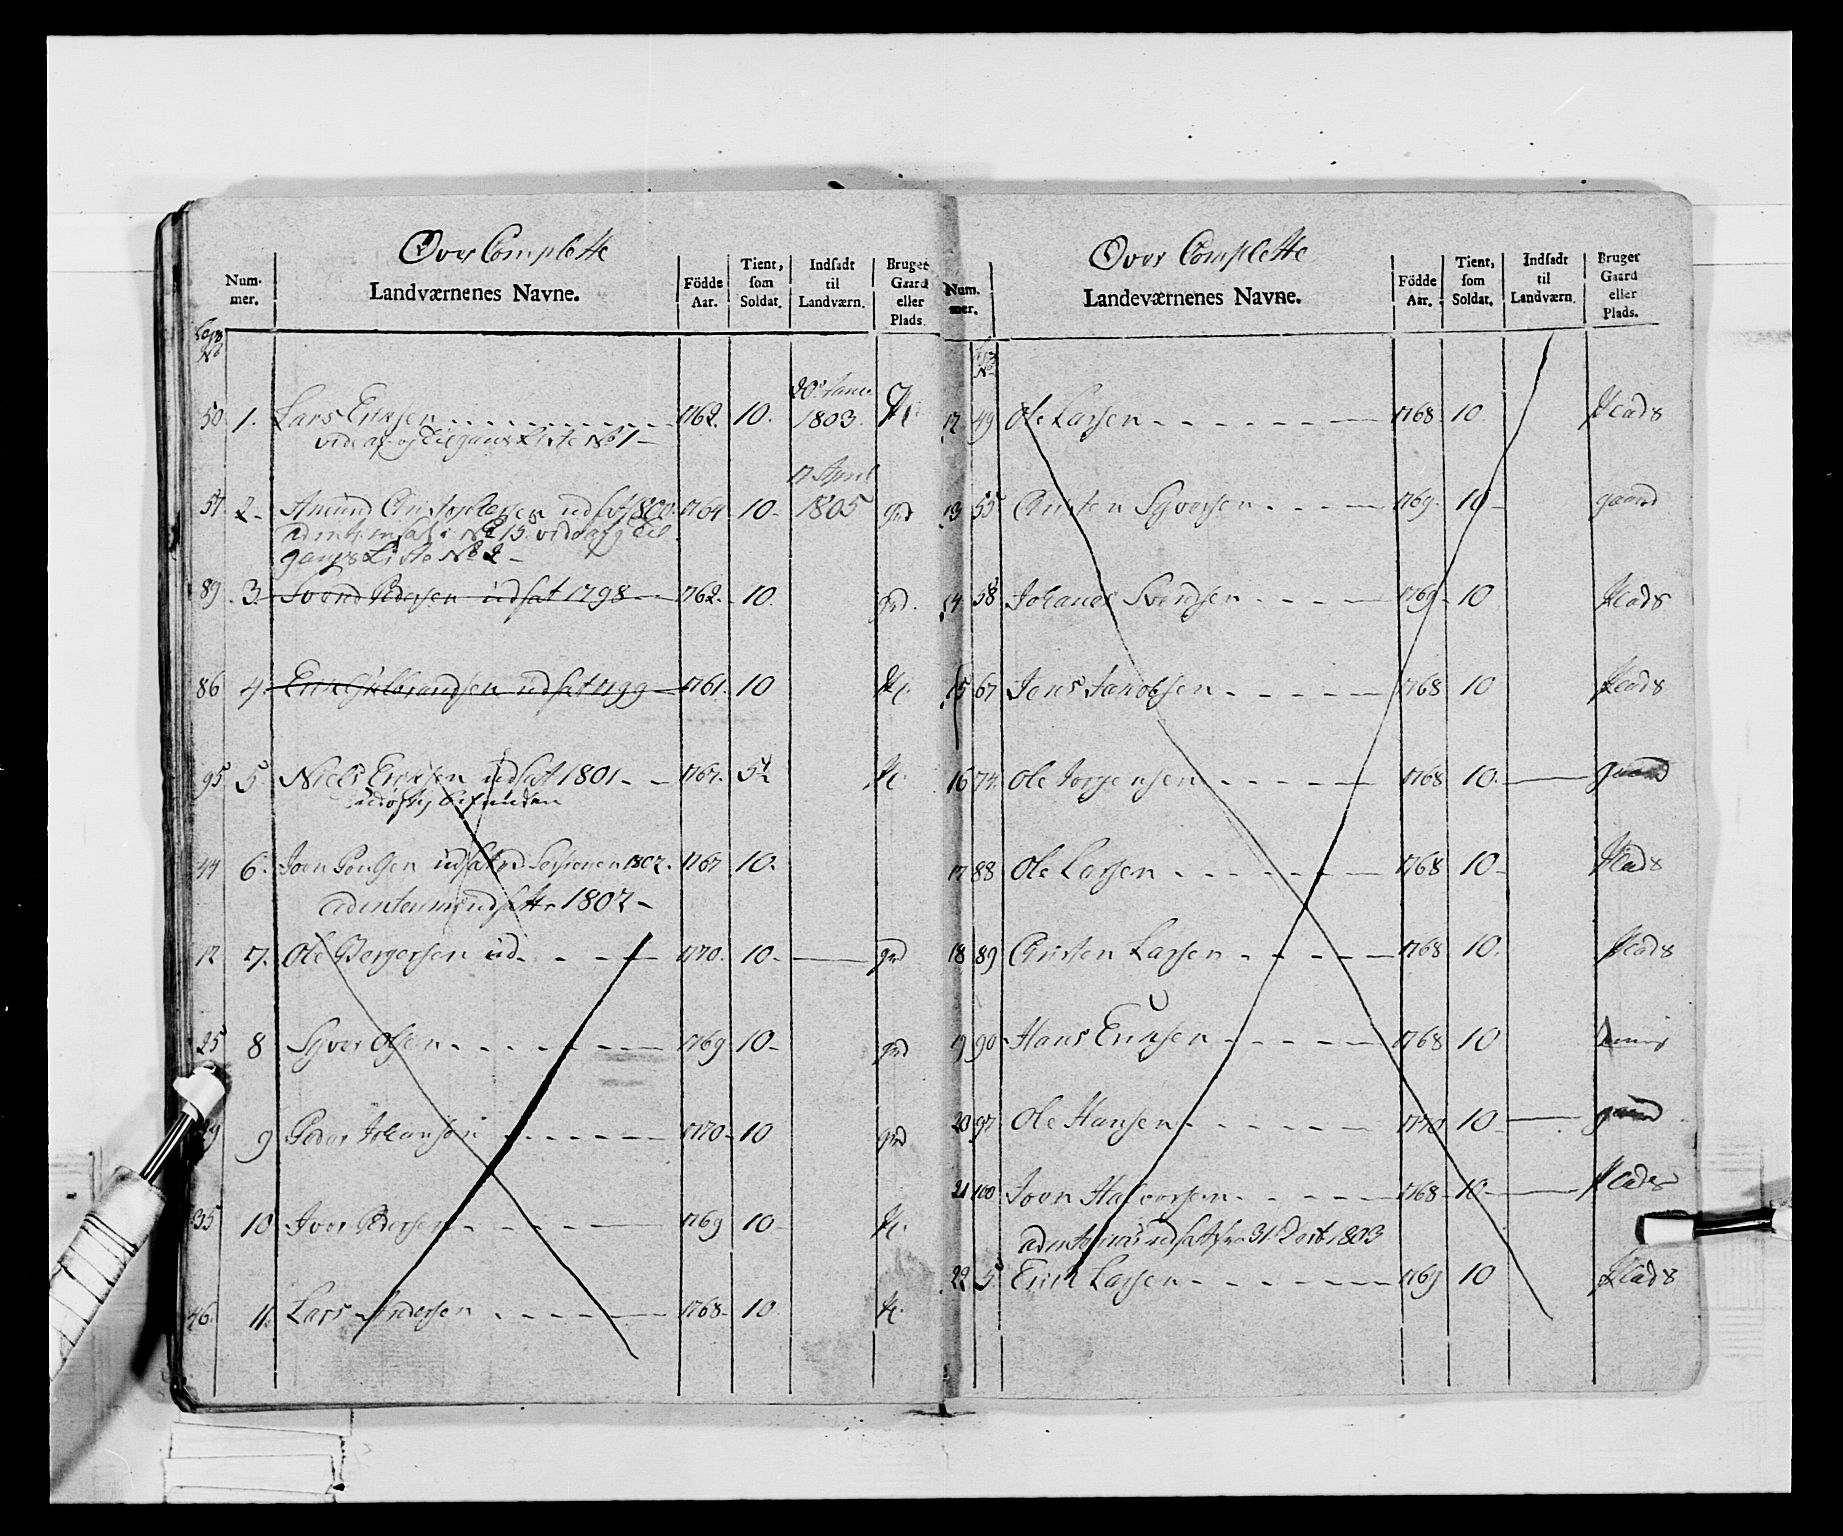 Over Complette
Num-
mer.
Landværnenes Navne.
Födde
Aar.
Tient,
som
Soldat.
Indsadt
til
Landværn.
Bruger
Gaard
eller
Plads.
No
50 1. Lars Eriksen 1762. 10. 20 Janu 1803 Pl.
vide af og Tilgangs Liste No 1
57 2. Amund Christophersen udsat 1800. 1764 10. 17 April 1805 grd
No 15. vide af og Til
gangs Liste No 2
89 3. Svend Pedersen udsat 1798 1762. 10. grd.
86 4. Erik Gulbrandsen udsat 1799 1761. 10 Pl.
95 5. Niels Eriksen udsat 1801 1767. 5½ Pl.
befunden
44 6. Joen Poulsen udsat ved Sessionen 1802. 1767 10.
ad interim udsatt 1802
12 7. Ole Borgersen ud 1770. 10 grd
25 8 Syver Olsen 1769 10 grd
29 9 Peder Johansen 1770 10 grd
35 10 Iver Pedersen 1769 10 Pl.
46. 11. Lars Andersen 1768 10 Pl.
Over Complette
Num.
mer.
Landeværnenes Navne.
Födde
Aar.
Tient,
som
Soldat.
Indsadt
til
Landværn.
Bruger
Gaard
eller
Plads.
No
12 49 Ole Larsen 1768 10 Plads
13 55 Christen Syversen 1769. 10 gaard
14 58 Johanes Svendsen 1769 10 Plads
15 67 Jens Jacobsen 1768 10 Plads
16 74. Ole Jorgensen 1768 10. gaard
17 88 Ole Larsen 1768 10 Plads
18 89 Christen Larsen 1768 10. Plads
19 90 Hans Eriksen 1768 10
20 97 Ole Hansen 1770 10 gaard
21 100 Joen Halvorsen 1768 10 Plads
ad interim udsat fra 31 Decb 1803
22 5 Erik Larsen 1769 10 Plads